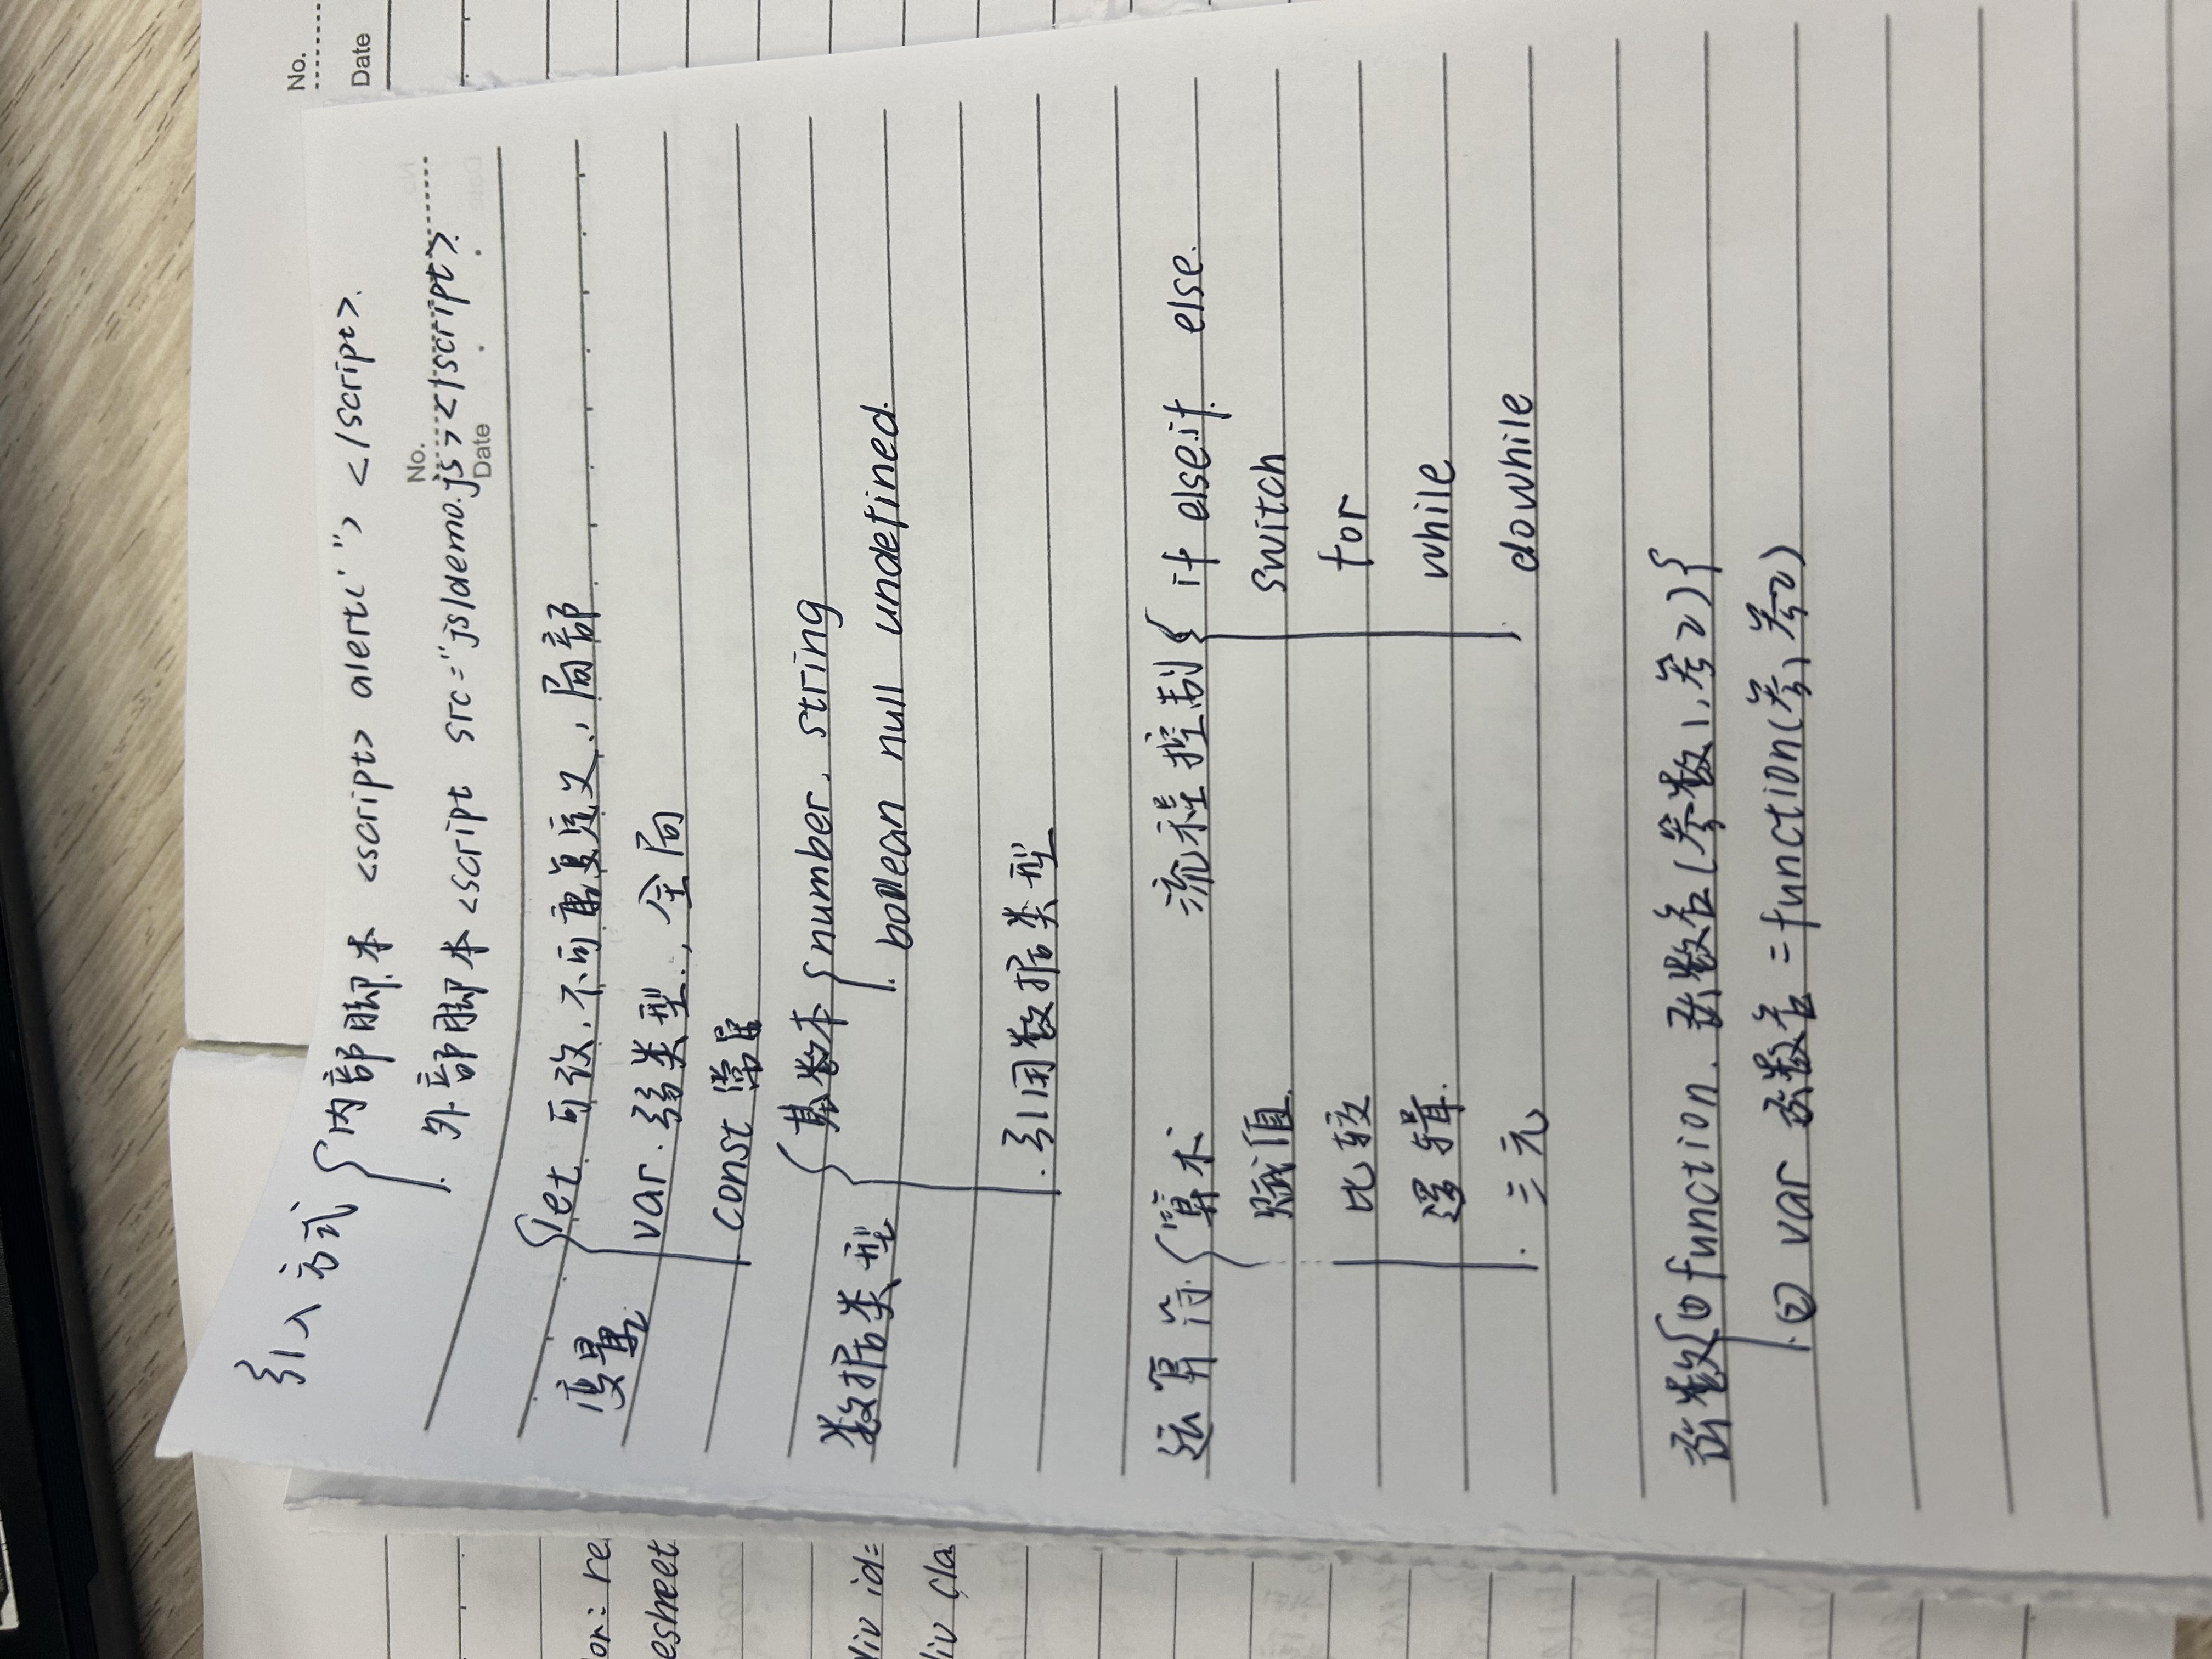 No.
Date
引入方式 { 内部脚本 <script> alert(' ") </script>.
外部脚本 <script src="js/demo.js></script>
No.
Date
变量 { let 可改, 不可重复定义, 局部
var. 弱类型, 全局
const 常量
数据类型 { 基数本 { number, string
boolean null undefined.
引用数据类型
运算符 { 算术
赋值.
比较
逻辑.
三元
流程控制 { if else.if else.
switch
for
while
dowhile
函数 { ① function. 函数名(参数1, 参2) {
② var 函数名 = function(参1 参2)
or: re
esheet
div id=
liv cla